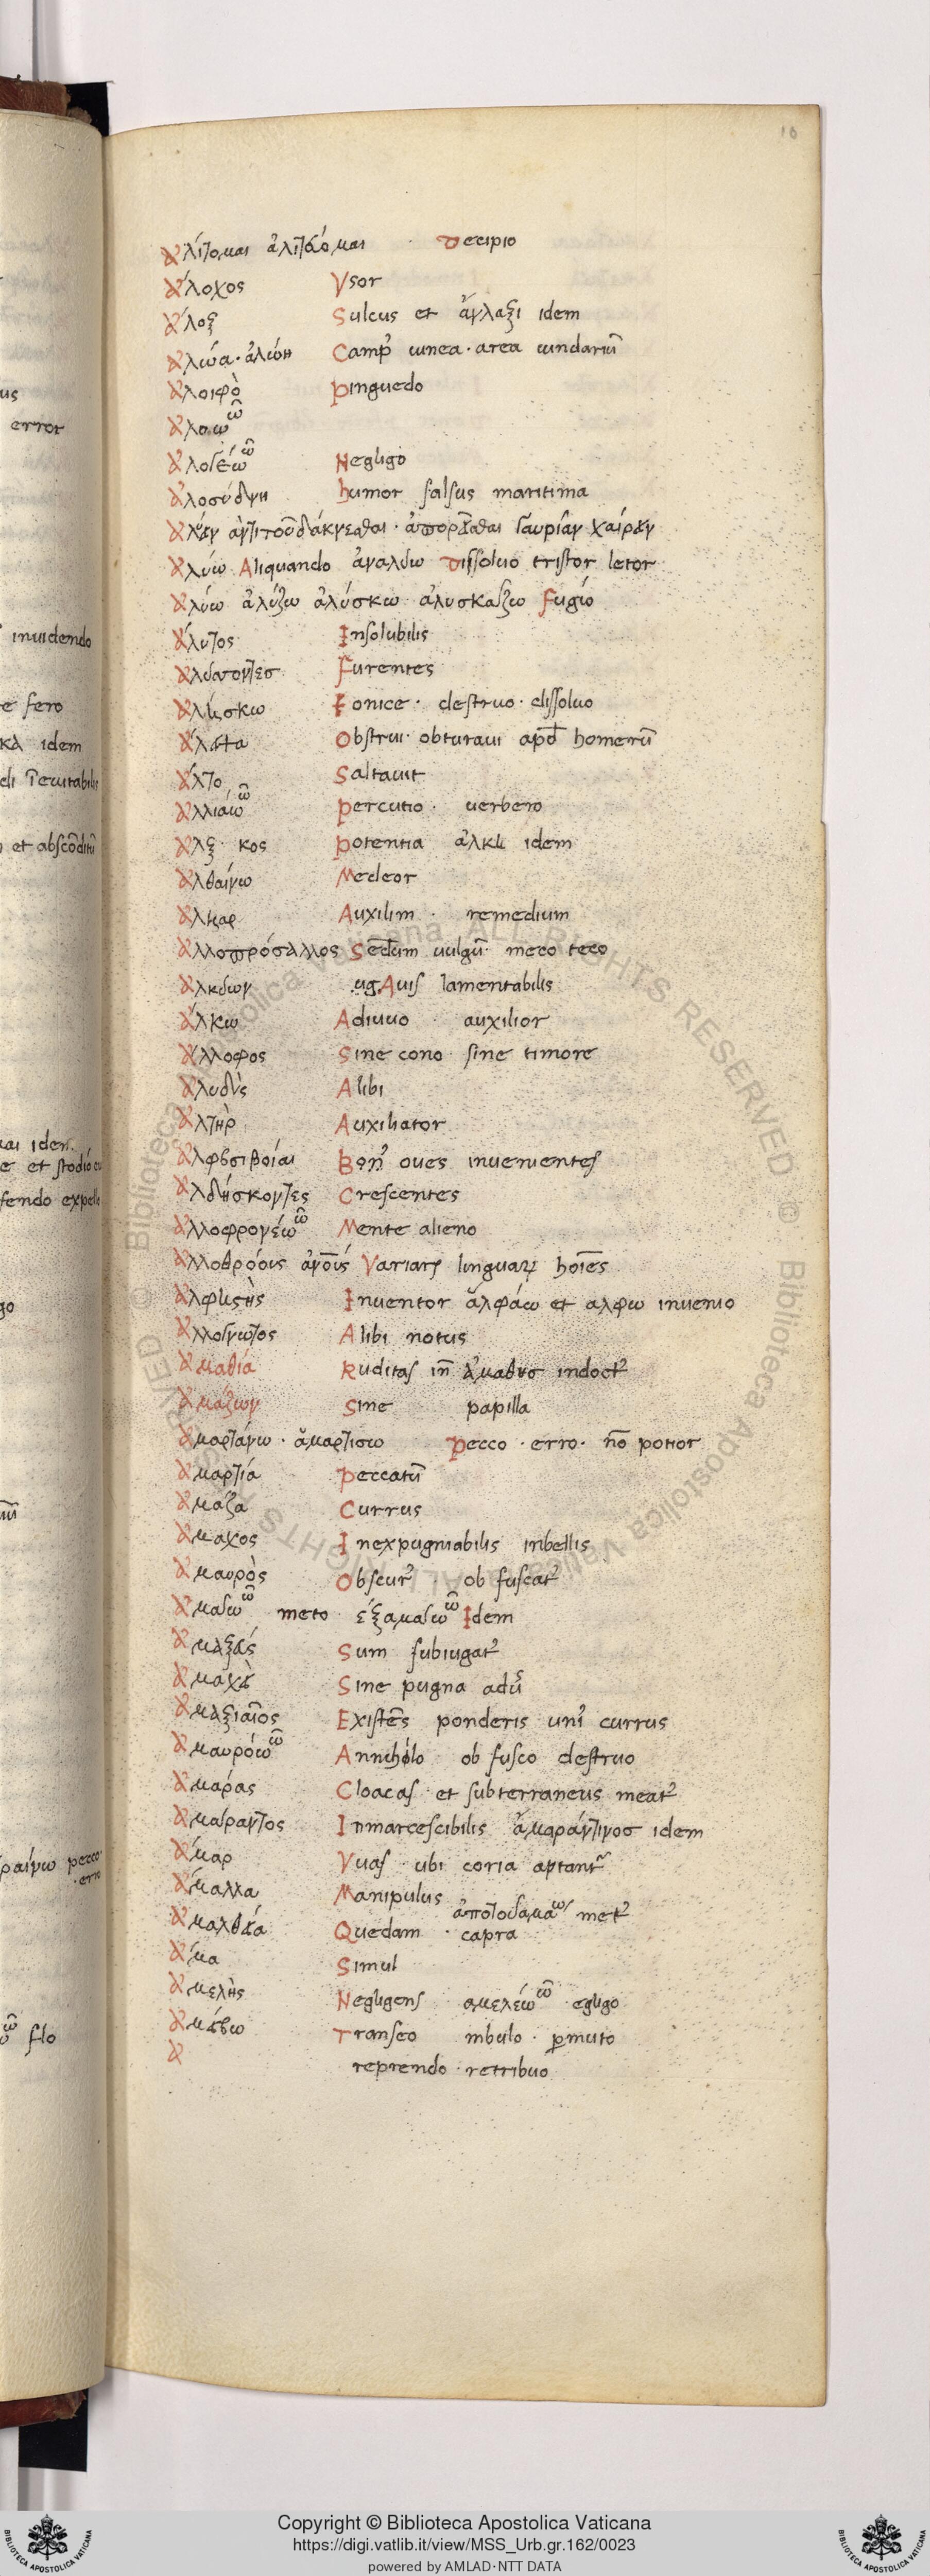 10
ἀλίτομαι ἀλιταίομαι · Decipio
ἄλοχος Vsor
ἄλοξ Sulcus et ἄνλαξι idem
ἀλωά · ἀλώη Camp⁹ uinea · area
ἀλοιφὸ Pinguedo
ἀλοῶ
ἀλογέω ῶ Negligo
ἀλοσύδνη humor salsus maritima
ἀλύειν ἀντὶ τοῦ δάκνεσθαι · ἀπορεῖσθαι γαυριᾶν χαίρειν
ἀλύω Aliquando ἀναλύω Dissoluo tristor letor
ἀλύω ἀλύζω ἀλύσκω ἀλυσκάζω Fugio
ἄλυτος Insolubilis
Furentes
Ionice · destruo · dissoluo
Obstrui · obturaui apđ homerū
ἄλτο Saltauit
ἀλλιάω ῶ Percutio · uerbero
ἀλξ κος Potentia ἀλκὴ idem
ἀλθαίνω Medeor
ἄλκαρ Auxilim · remedium
ἀλλοπρόσαλλος uulgū · meco teco
ἀλκδων .ug. Auis lamentabilis
ἄλκω Adiuuo · auxilior
ἄλλοφος Sine cono · sine timore
ἀλυδὶς Alibi
ἀλτὴρ Auxiliator
ἀλφεσιβοίαι oues inuenientes
ἀλδήσκοντες Crescentes
ἀλλοφρονέω ῶ Mente alieno
ἀλλοθρόους ἀνους Variar linguar hoīes
ἀλφηστὴς Inuentor ἀλφάω et αλφω inuenio
ἀλλόγνωτος Alibi notus
ἀμαθία Ruditas iñ ἀμαθυσ indoct⁹
ἀμάζων Sine papilla
ἁμαρτάνω · ἁμαρτισω Pecco · erro · nō potior
ἁμαρτία Peccatū
ἄμαξα Currus
ἄμαχος Inexpugniabilis inbellis
ἀμαυρὸς Obscur⁹ · ob fuscat⁹
ἀμαω ῶ meto · ἐξαμαω ῶ Idem
Sum subiugat⁹
ἀμαχεὶ Sine pugna
ἀμαξιαῖος Existēs ponderis uni⁹ currus
ἀμαυρόω ῶ Annichilo ob fusco destruo
ἀμάρας Cloacas · et subterraneus meat⁹
ἀμάραντος Inmarcescibilis ἀμαράντινοσ idem
ἄμαρ Vuas · ubi coria aptant
ἄμαλλα Manipulus met⁹
ἀμαλθεία Quedam · capra
ἄμα Simul
ἀμελὴς Negligens αμελέω ῶ egligo
ἀμείβω Transeo mbulo · permuto
ἀ reprendo · retribuo
us
error
inuidendo
e fero
κὰ idem
et abscōditū
ραίνω pecco
· erro
flo
© Biblioteca Apostolica Vaticana ALL RIGHTS RESERVED
Copyright © Biblioteca Apostolica Vaticana
https://digi.vatlib.it/view/MSS_Urb.gr.162/0023
powered by AMLAD·NTT DATA
BIBLIOTECA APOSTOLICA VATICANA
BIBLIOTECA APOSTOLICA VATICANA